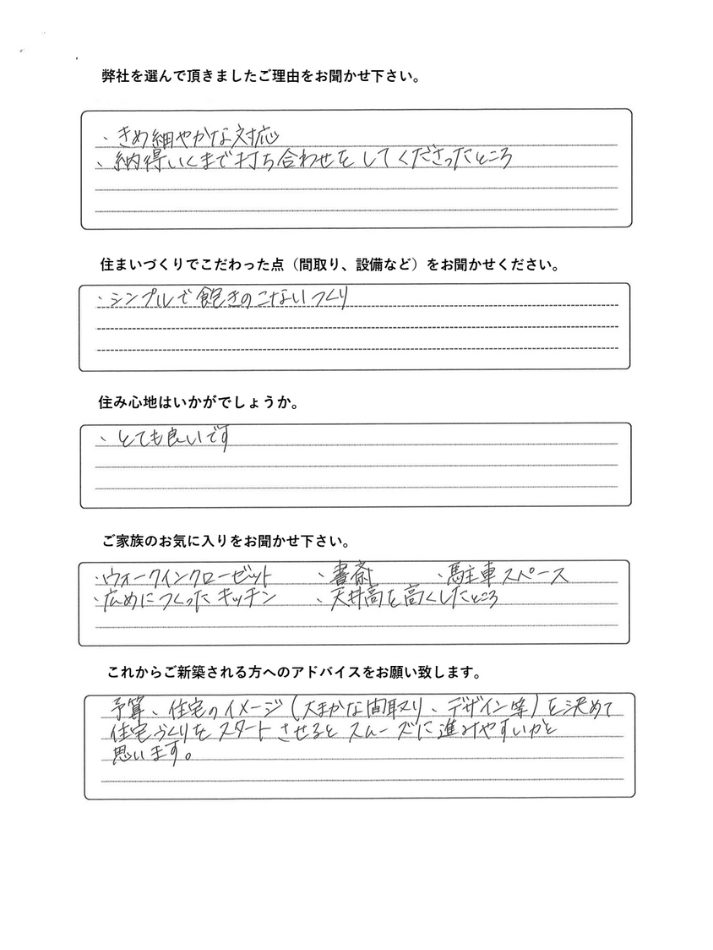 弊社を選んで頂きましたご理由をお聞かせ下さい。
・きめ細やかな対応
・納得いくまで打ち合わせをしてくださったところ
住まいづくりでこだわった点（間取り、設備など）をお聞かせください。
・シンプルで飽きのこないつくり
住み心地はいかがでしょうか。
・とても良いです
ご家族のお気に入りをお聞かせ下さい。
・ウォークインクローゼット ・書斎 ・駐車スペース
・広めにつくったキッチン ・天井高を高くしたところ
これからご新築される方へのアドバイスをお願い致します。
予算、住宅のイメージ（大まかな間取り、デザイン等）を決めて
住宅づくりをスタートさせるとスムーズに進みやすいかと
思います。